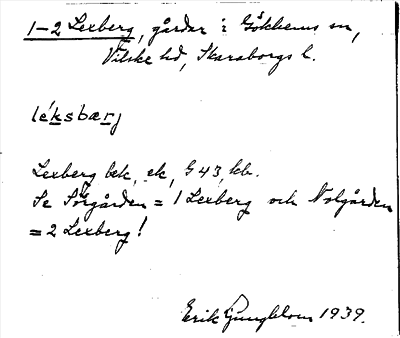 1-2 Lexberg, gårdar i Gökhems sn,
Vilske hd, Skaraborgs l.
léksbærj
Lexberg bek, ek, G 43, kb.
Se Sörgården = 1 Lexberg och Nolgården
= 2 Lexberg!
Erik Ljungblom 1939.